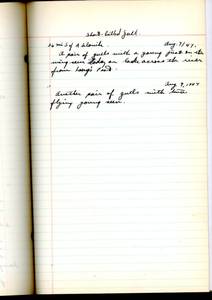 Short-billed Gull
26 mi S of Atlanta. Aug. 7/47.
A pair of gulls with a young just on the
wing seen today on lake across the river
from Long's Pond.
Aug 9, 1947
Another pair of gulls with
flying young seen.